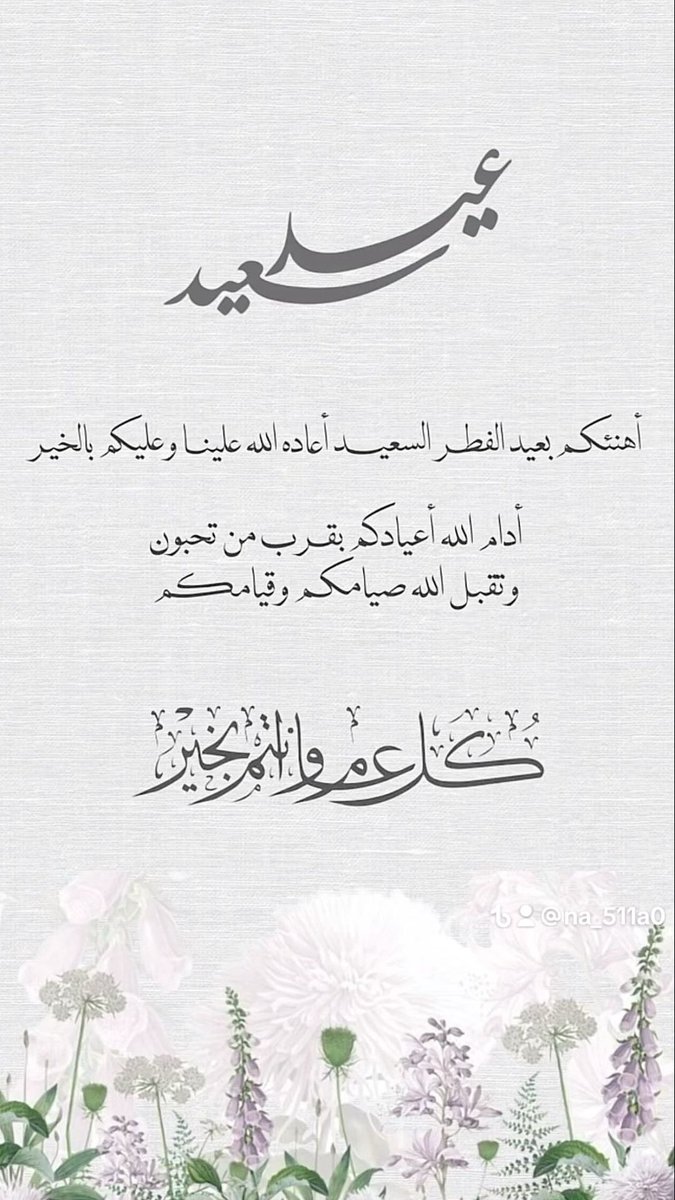 عيد سعيد
أهنئكم بعيد الفطر السعيد أعاده الله علينا وعليكم بالخير
أدام الله أعيادكم بقرب من تحبون
وتقبل الله صيامكم وقيامكم
كُل عام وانتم بخير
@na_511a0